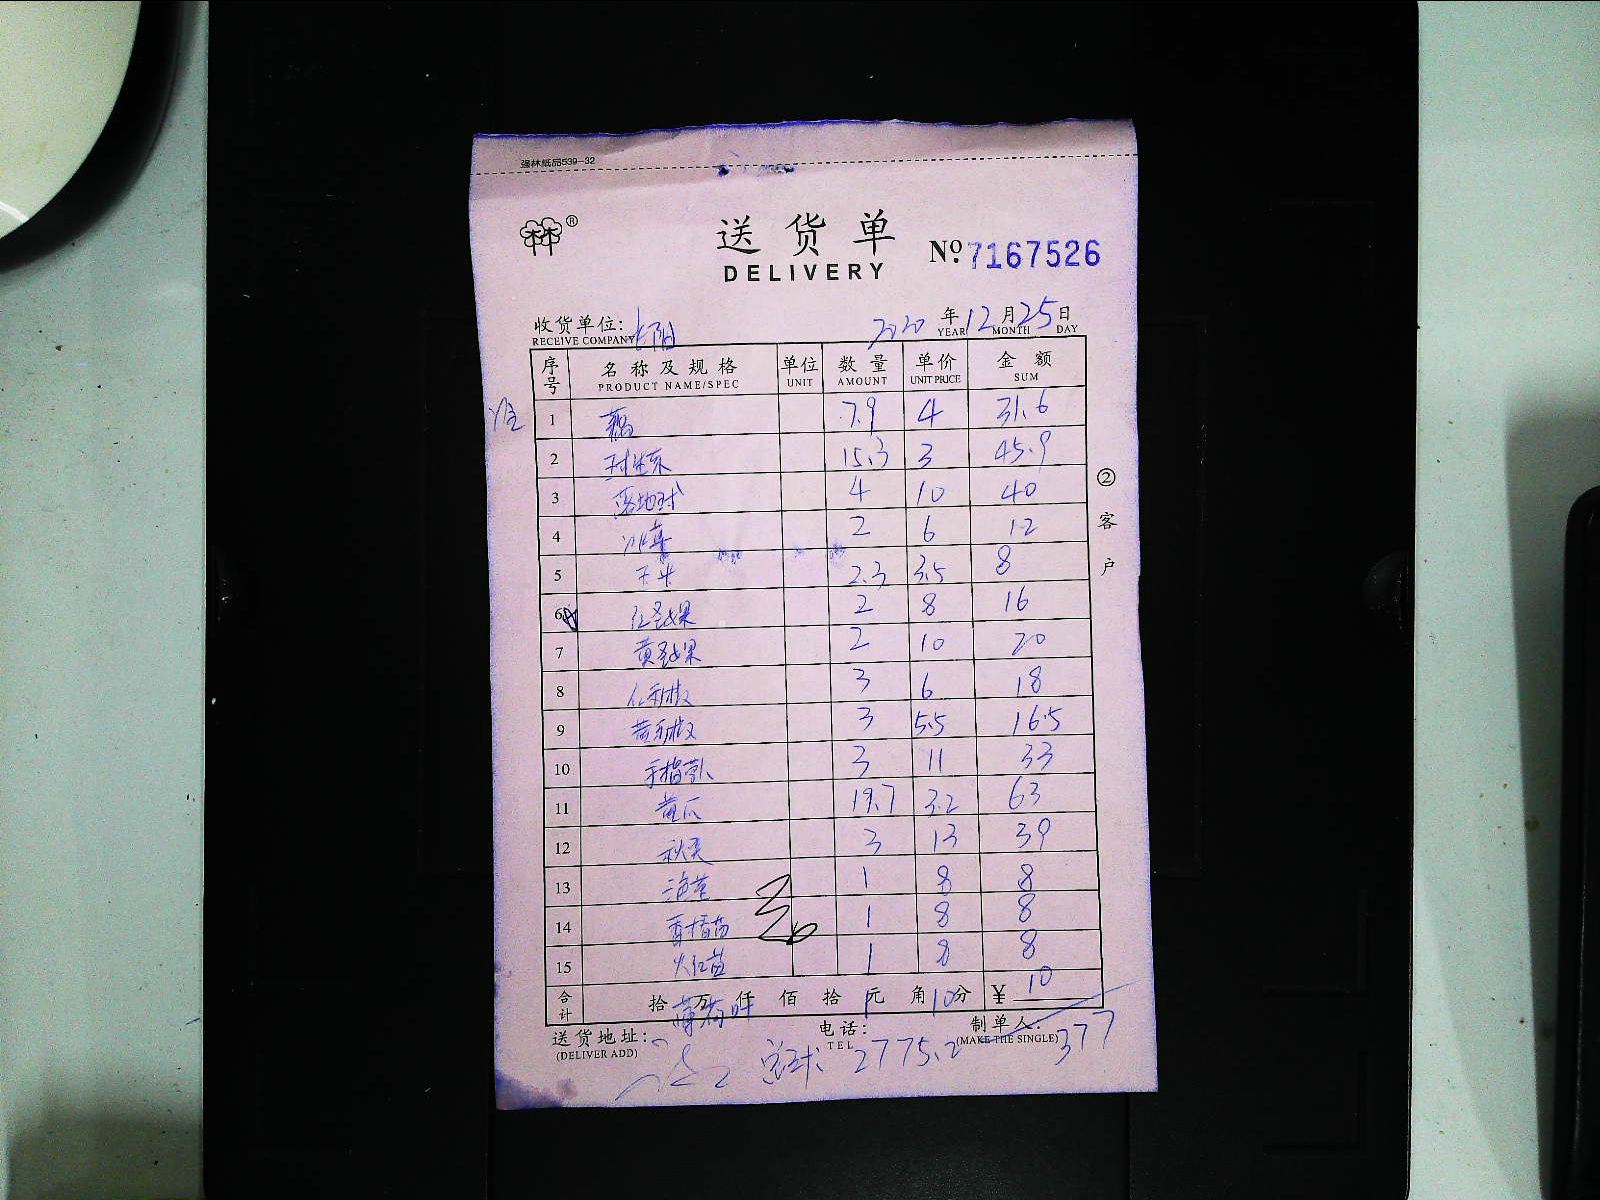 强林纸品539-32
林®
送货单
DELIVERY
No. 7167526
收货单位:
RECEIVE COMPANY
2020 年 12 月 25 日
YEAR MONTH DAY
序号 名称及规格 单位 数量 单价 金额
PRODUCT NAME/SPEC UNIT AMOUNT UNIT PRICE SUM
1 藕 7.9 4 31.6
2 15.3 3 45.9
3 4 10 40
4 冰草 2 6 12
5 玉米 2.3 3.5 8
6 红圣女果 2 8 16
7 黄圣女果 2 10 20
8 红彩椒 3 6 18
9 黄彩椒 3 5.5 16.5
10 手指萝卜 3 11 33
11 黄瓜 19.7 3.2 63
12 秋葵 3 13 39
13 1 8 8
14 1 8 8
15 火红苗 1 8 8
合计 拾 万 仟 佰 拾 元 角 分 ¥ 10
薄荷叶 1 10
送货地址: 电话: 制单人:
(DELIVER ADD) TEL (MAKE THE SINGLE)
2775.2 377
②客户